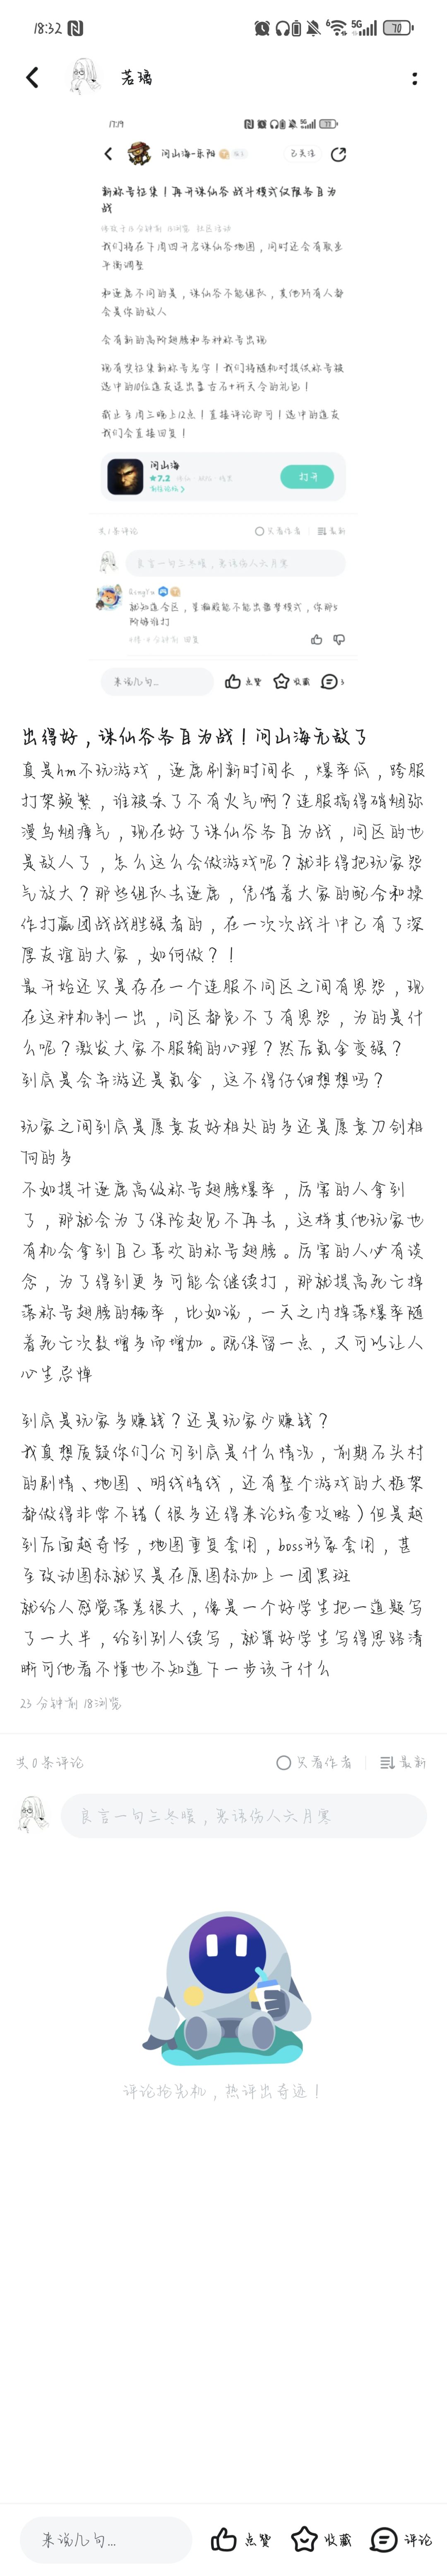 18:32
5G
70
若璃
17:19
问山海-乐阳
已关注
新称号征集！再开诛仙谷 战斗模式仅限各自为
战
我们将在下周四开启诛仙谷地图，同时还会有职业
平衡调整
和逐鹿不同的是，诛仙谷不能组队，其他所有人都
会是你的敌人
会有新的高阶翅膀和各种称号出现
现有奖征集新称号名字！我们将随机对提供称号被
选中的10位道友送出盘古石+祈天令的礼包！
截止至周三晚上12点！直接评论即可！选中的道友
我们会直接回复！
问山海
7.2
打开
共1条评论
只看作者
最新
良言一句三冬暖，恶语伤人六月寒
QingYu
来说几句...
点赞
收藏
出得好，诛仙谷各自为战！问山海无敌了
真是hm不玩游戏，逐鹿刷新时间长，爆率低，跨服
打架频繁，谁被杀了不有火气啊？连服搞得硝烟弥
漫乌烟瘴气，现在好了诛仙谷各自为战，同区的也
是敌人了，怎么这么会做游戏呢？就非得把玩家怨
气放大？那些组队去逐鹿，凭借着大家的配合和操
作打赢团战战胜强者的，在一次次战斗中已有了深
厚友谊的大家，如何做？！
最开始还只是存在一个连服不同区之间有恩怨，现
在这种机制一出，同区都免不了有恩怨，为的是什
么呢？激发大家不服输的心理？然后氪金变强？
到底是会弃游还是氪金，这不得仔细想想吗？
玩家之间到底是愿意友好相处的多还是愿意刀剑相
向的多
不如提升逐鹿高级称号翅膀爆率，厉害的人拿到
了，那就会为了保险起见不再去，这样其他玩家也
有机会拿到自己喜欢的称号翅膀。厉害的人少有谈
念，为了得到更多可能会继续打，那就提高死亡掉
落称号翅膀的概率，比如说，一天之内掉落爆率随
着死亡次数增多而增加。既保留一点，又可以让人
心生忌惮
到底是玩家多赚钱？还是玩家少赚钱？
我真想质疑你们公司到底是什么情况，前期石头村
的剧情、地图、明线暗线，还有整个游戏的大框架
都做得非常不错（很多还得来论坛查攻略）但是越
到后面越奇怪，地图重复套用，boss形象套用，甚
至改动图标就只是在原图标加上一团黑斑
就给人感觉落差很大，像是一个好学生把一道题写
了一大半，给到别人续写，就算好学生写得思路清
晰可他看不懂也不知道下一步该干什么
23 分钟前 18浏览
共0条评论
只看作者
最新
良言一句三冬暖，恶语伤人六月寒
评论抢先机，热评出奇迹！
来说几句...
点赞
收藏
评论